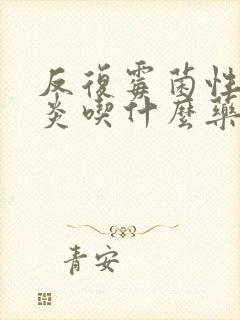 反復霉菌性
炎喫什麼藥
青安